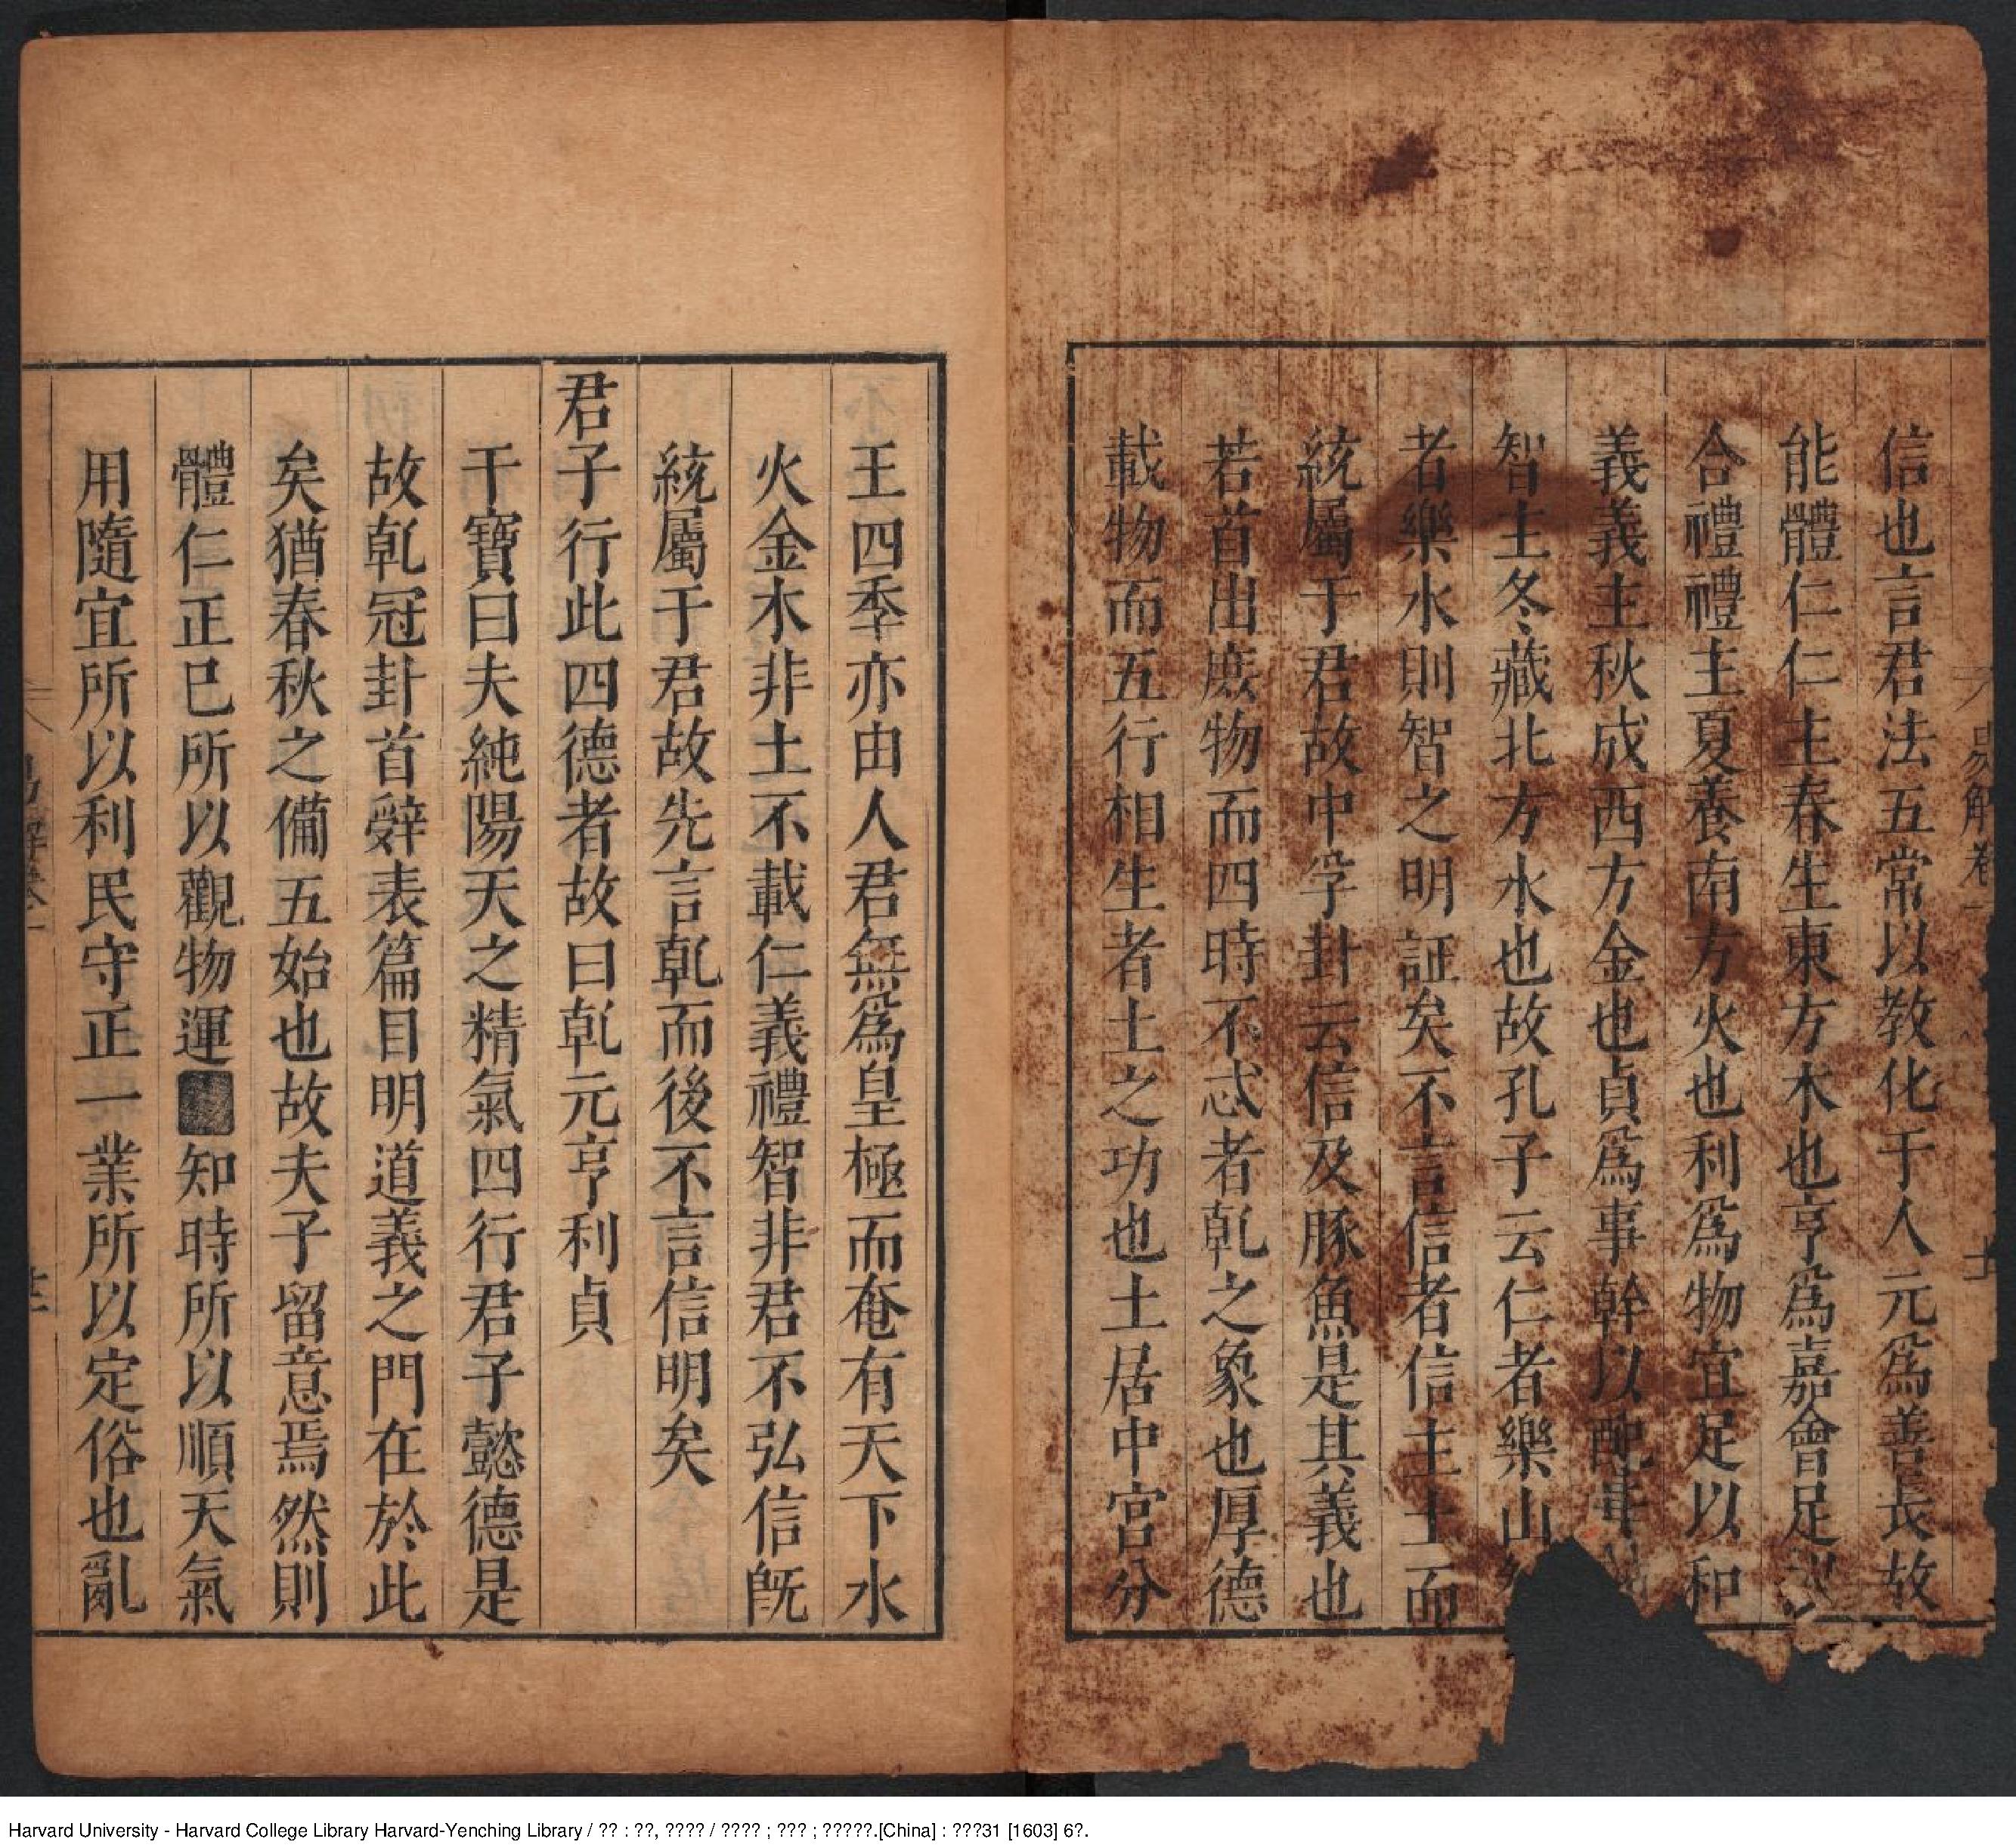 信也言君法五常以教化于人元爲善長故
能體仁仁主春生東方木也亨爲嘉會足以
合禮禮主夏養南方火也利爲物宜足以和
義義主秋成西方金也貞爲事幹以配
智主冬藏北方水也故孔子云仁者樂山
者樂水則智之明証矣不言信者信主土而
統屬于君故中孚卦云信及豚魚是其義也
若首出庶物而四時不忒者乾之象也厚德
載物而五行相生者土之功也土居中宮分
易解卷一
王四季亦由人君無爲皇極而奄有天下水
火金木非土不載仁義禮智非君不弘信旣
統屬于君故先言乾而後不言信明矣
君子行此四德者故曰乾元亨利貞
干寶曰夫純陽天之精氣四行君子懿德是
故乾冠卦首辭表篇目明道義之門在於此
矣猶春秋之備五始也故夫子留意焉然則
體仁正已所以觀物運知時所以順天氣
用隨宜所以利民守正一業所以定俗也亂
Harvard University - Harvard College Library Harvard-Yenching Library / ?? : ??, ???? / ???? ; ??? ; ?????.[China] : ???31 [1603] 6?.